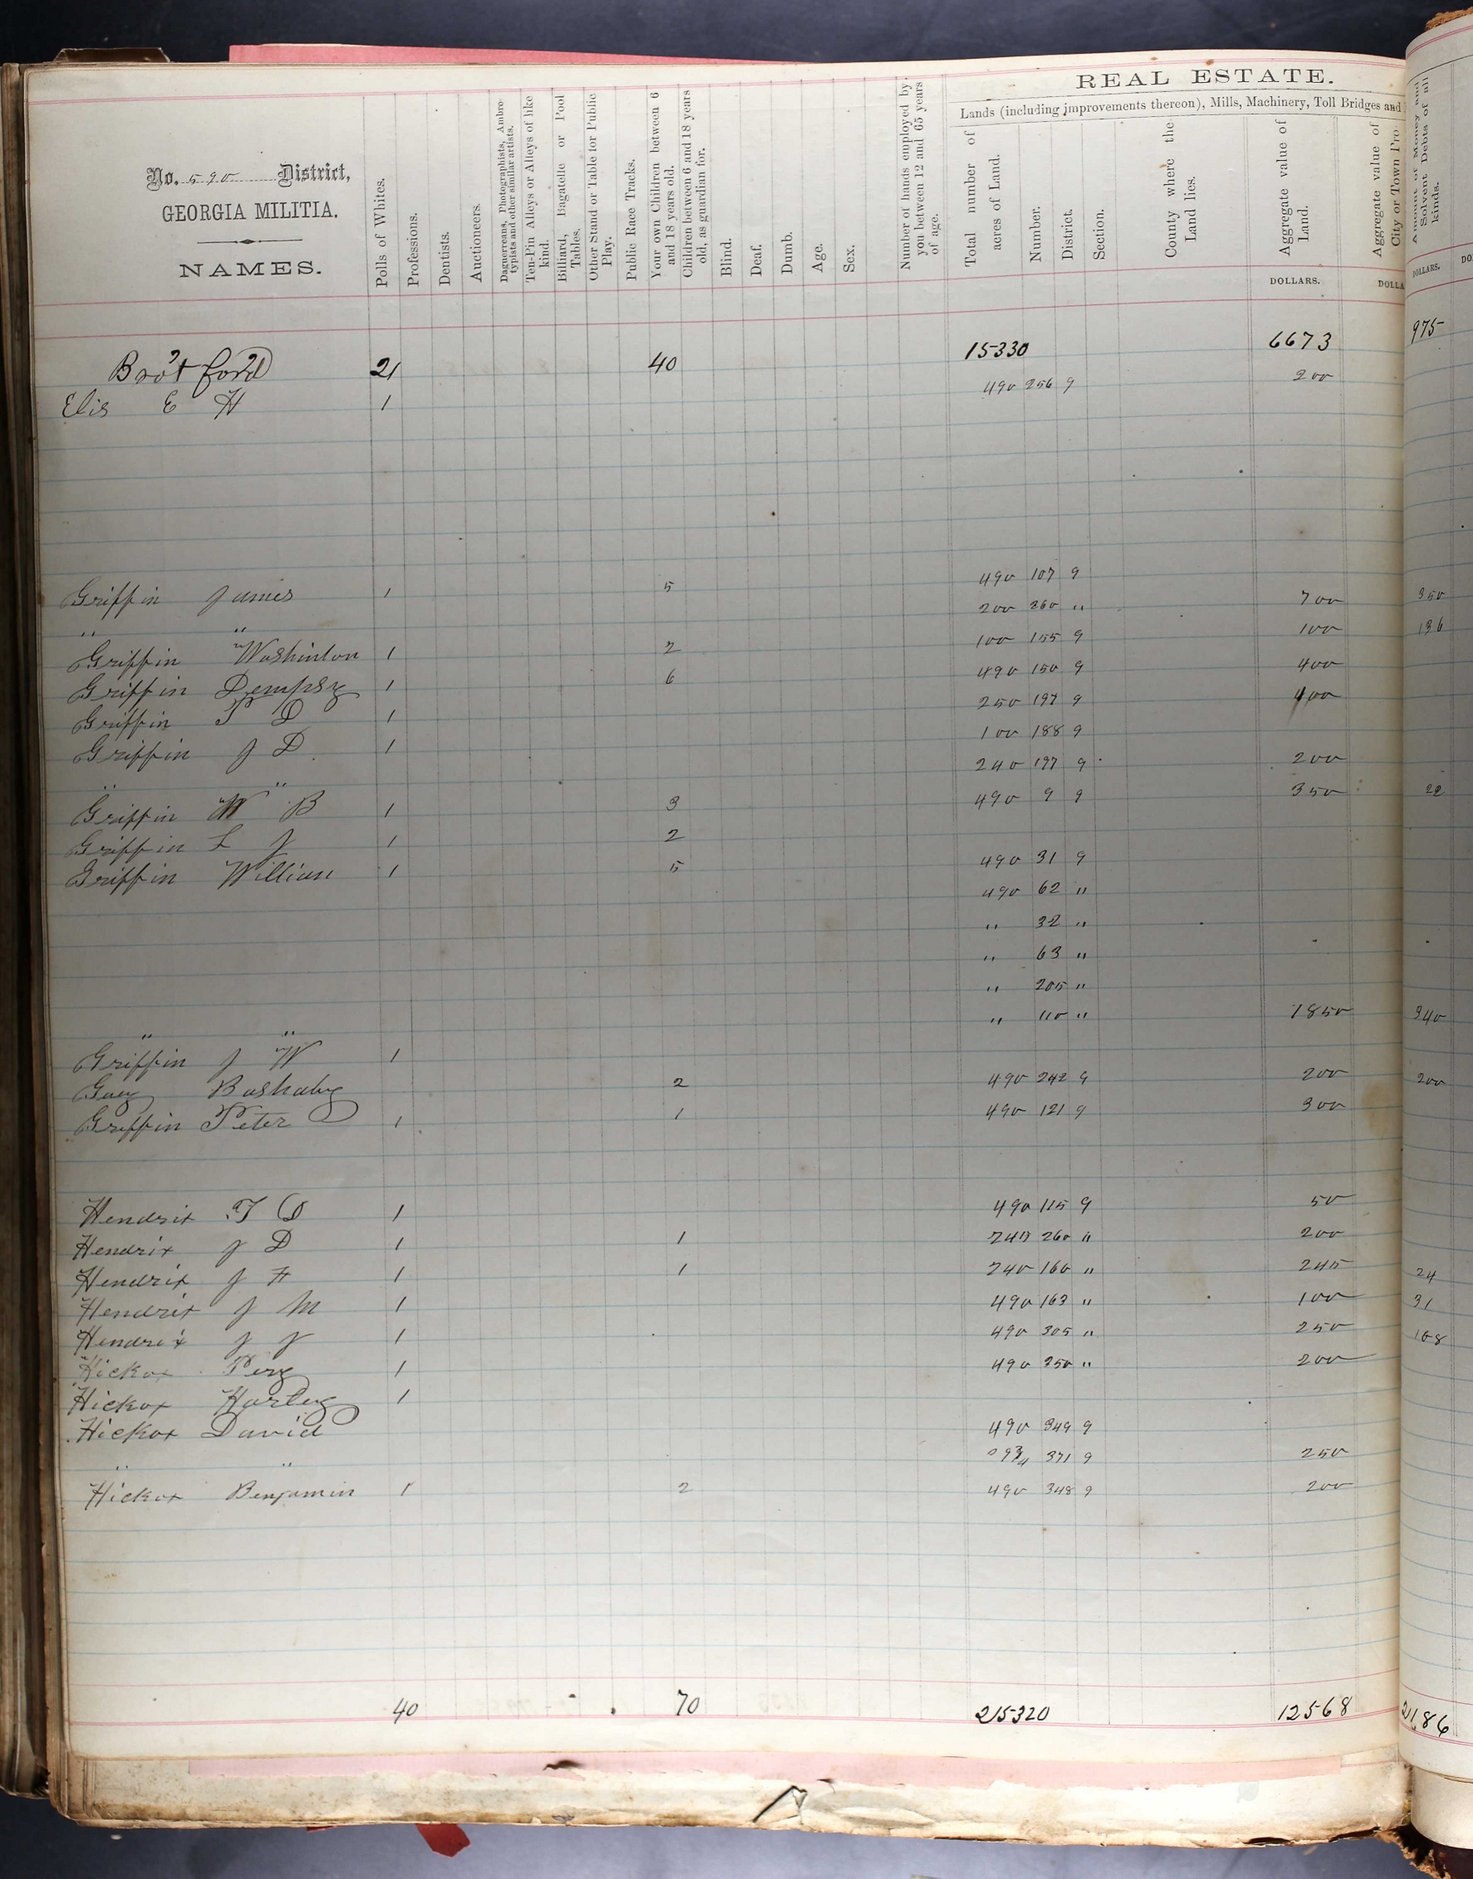 REAL ESTATE.
Lands (including improvements thereon), Mills, Machinery, Toll Bridges and
No. 590 District,
GEORGIA MILITIA.
NAMES.
Polls of Whites.
Professions.
Dentists.
Auctioneers.
Daguerreans, Photographists, Ambrotypists and other similar artists.
Ten-Pin Alleys or Alleys of like kind.
Billiard, Bagatelle or Pool Tables.
Other Stand or Table for Public Play.
Public Race Tracks.
Your own Children between 6 and 18 years old.
Children between 6 and 18 years old, as guardian for.
Blind.
Deaf.
Dumb.
Age.
Sex.
Number of hands employed by you between 12 and 65 years of age.
Total number of acres of Land.
Number.
District.
Section.
County where the Land lies.
Aggregate value of Land.
Aggregate value of City or Town Pro-
Amount of Money and Solvent Debts of all kinds.
DOLLARS. DOLLA DOLLARS. DO
Bro't ford 21 40 15330 6673 975
Elis E H 1 490 256 9 200
490 107 9
Griffin James 1 5 200 260 " 700 350
" " 100 155 9 100 136
Griffin Washinton 1 2 490 150 9 400
Griffin Dempsy 1 6 250 197 9 400
Griffin P D 1 100 188 9
Griffin J D 1 240 197 9 200
" " 490 9 9 350 22
Griffin W B 1 3
Griffin L J 1 2 490 31 9
Griffin William 1 5 490 62 "
" 32 "
" 63 "
" 205 "
" 110 " 1850 340
" "
Griffin J W 1 490 242 9 200 200
Guy Bashaby 2 490 121 9 300
Griffin Peter 1 1
Hendrix T D 1 490 115 9 50
Hendrix J D 1 1 245 260 " 200
Hendrix J F 1 1 240 160 " 245 24
Hendrix J M 1 490 163 " 100 31
Hendrix J J 1 490 305 " 250 108
Hickox Pery 1 490 350 " 200
Hickox Harley 1
Hickox David 490 349 9
" " 371 9 250
Hickox Benjamin 1 2 490 348 9 200
40 70 215320 12568 2186